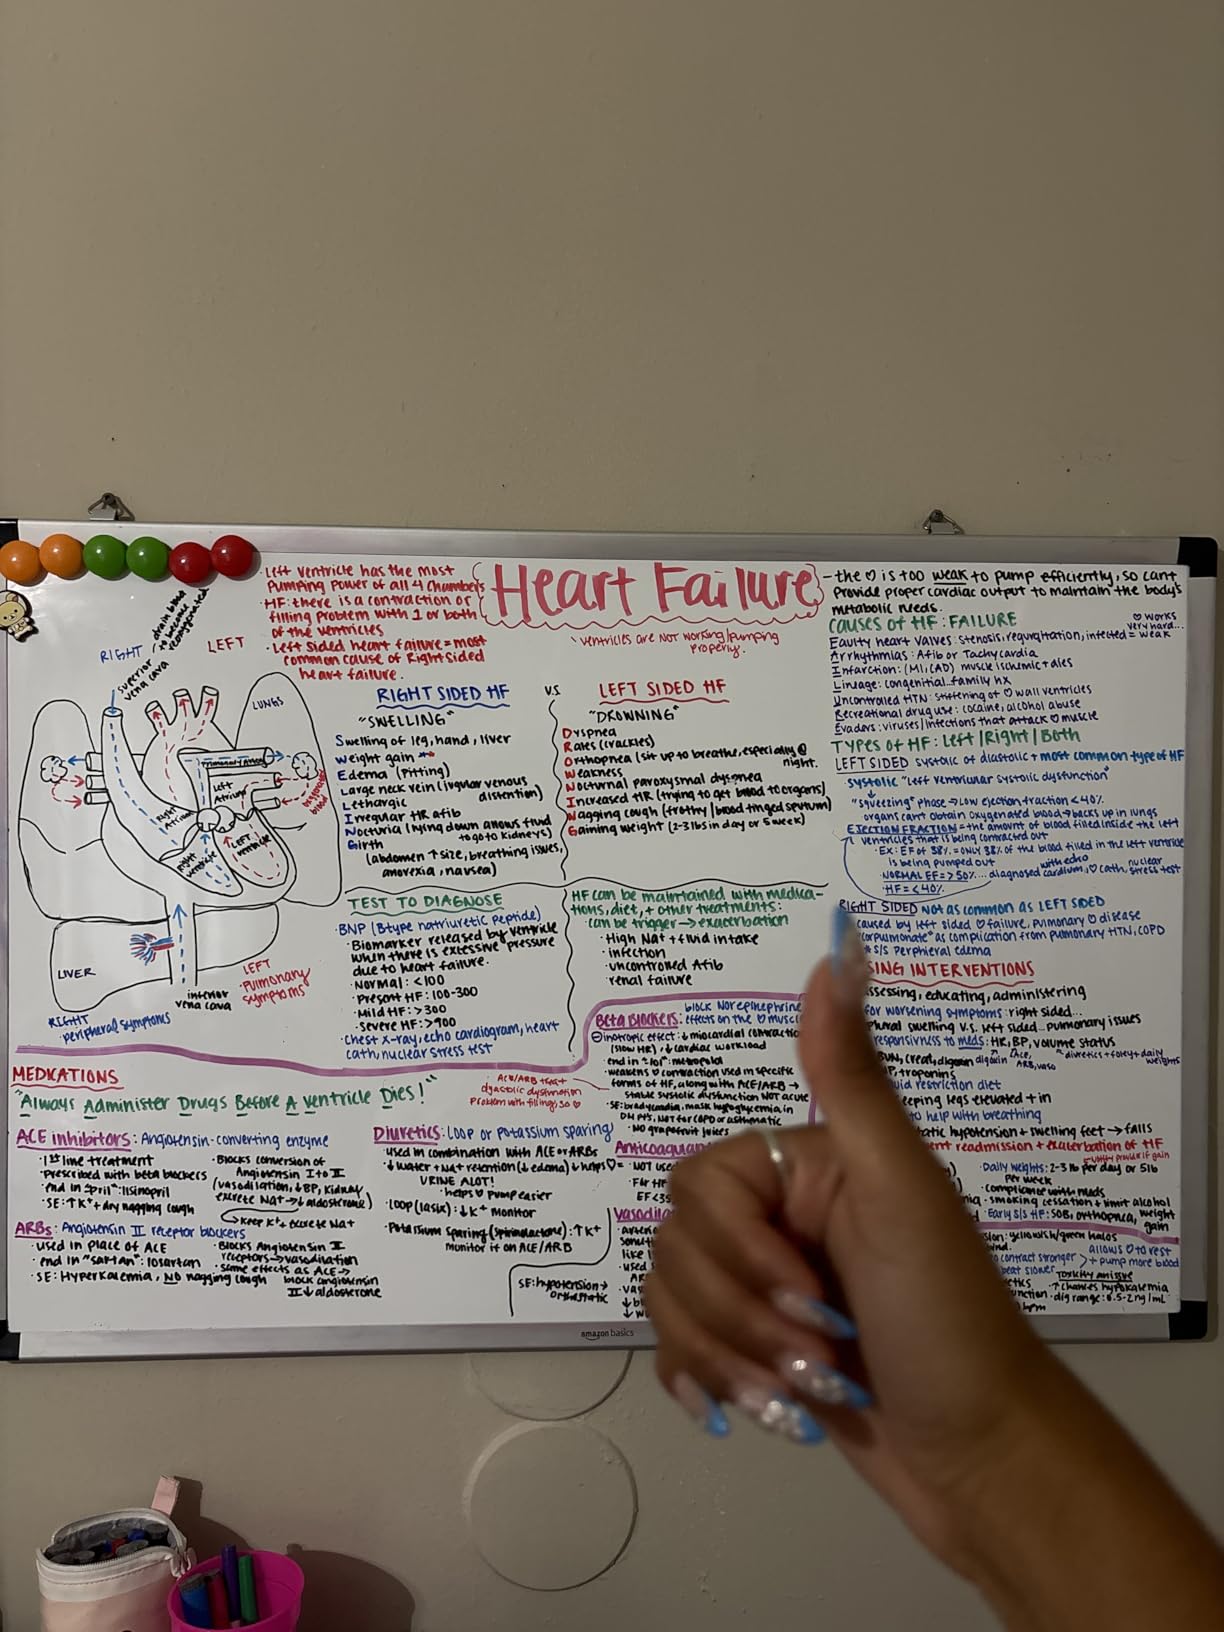 Heart Failure
ventricles are NOT working/pumping
properly.
· Left ventricle has the most
pumping power of all 4 chambers
· HF: there is a contraction or
filling problem with 1 or both
of the ventricles
· Left sided heart failure = most
common cause of Right sided
heart failure.
RIGHT
LEFT
superior
vena cava
drain blood
to become
reoxygenated
LUNGS
Pulmonary Artery
Left
Atrium
Right
Atrium
Right
ventricle
LEFT
ventricle
oxygenated
blood
LIVER
inferior
vena cava
LEFT
Pulmonary
symptoms
RIGHT
peripheral symptoms
RIGHT SIDED HF
"SWELLING"
Swelling of leg, hand, liver
Weight gain
Edema (Pitting)
Large neck vein (jugular venous
distention)
Lethargic
Irregular HR afib
Nocturia (lying down allows fluid
to go to kidneys)
Girth
(abdomen ↑ size, breathing issues,
anorexia, nausea)
V.S.
LEFT SIDED HF
"DROWNING"
Dyspnea
Rales (crackles)
Orthopnea (sit up to breathe, especially @
night.
Weakness
Nocturnal paroxysmal dyspnea
Increased HR (trying to get blood to organs)
Nagging cough (frothy/blood tinged sputum)
Gaining weight (2-3 lbs in day or 5 week)
TEST TO DIAGNOSE
· BNP (Btype natriuretic peptide)
· Biomarker released by ventricle
when there is excessive pressure
due to heart failure.
· Normal: <100
· Present HF: 100-300
· Mild HF: >300
· Severe HF: >900
· chest x-ray, echo cardiogram, heart
cath, nuclear stress test
HF can be maintained with medica-
tions, diet, + other treatments:
can be trigger → exacerbation
· High Na+ + fluid intake
· infection
· uncontrolled Afib
· renal failure
- the ♡ is too weak to pump efficiently, so can't
provide proper cardiac output to maintain the body's
metabolic needs.
♡ works
very hard...
= weak
CAUSES OF HF: FAILURE
Faulty heart valves: stenosis, regurgitation, infected
Arrhythmias: Afib or Tachycardia
Infarction: (MI, CAD) muscle ischemic + dies
Lineage: congenital..family hx
Uncontrolled HTN: stiffening of ♡ wall ventricles
Recreational drug use: cocaine, alcohol abuse
Evaders: viruses/infections that attack ♡ muscle
TYPES OF HF: Left/Right/Both
LEFT SIDED systolic or diastolic + most common type of HF
systolic "left ventricular systolic dysfunction"
"squeezing" phase → low ejection fraction <40%
organs can't obtain oxygenated blood → backs up in lungs
EJECTION FRACTION = the amount of blood filled inside the left
ventricles that is being contracted out
· Ex: EF of 38% = only 38% of the blood filled in the left ventricle
is being pumped out
· NORMAL EF = >50% ... diagnosed with echo cardium, ♡ cath, nuclear stress test
· HF = <40%
RIGHT SIDED Not as common as LEFT SIDED
caused by left sided ♡ failure, pulmonary ♡ disease
"corpulmonale" as complication from pulmonary HTN, COPD
S/S peripheral edema
INTERVENTIONS
assessing, educating, administering
for worsening symptoms: right sided...
swelling v.s. left sided...pulmonary issues
responsiveness to meds: HR, BP, volume status
BUN, creat, digoxin
ACE,
ARB, vaso
diuretics + foley + daily
weights
troponins
restriction diet
keeping legs elevated + in
to help with breathing
hypotension + swelling feet → falls
readmission + exacerbation of HF
· Daily weights: 2-3 lb per day or 5lb
per week
· compliance with meds
· smoking cessation + limit alcohol
· Early S/S HF: SOB, orthopnea, weight
gain
yellowish/green halos
contract stronger
beat slower
allows ♡ to rest
+ pump more blood
Toxicity
↑ chances hypokalemia
· dig range: 0.5-2ng/mL
bpm
MEDICATIONS
"Always Administer Drugs Before A Ventricle Dies!"
ACE inhibitors: Angiotensin-converting enzyme
· 1st line treatment
· Prescribed with beta blockers
· end in "pril": lisinopril
· SE: ↑K+ + dry nagging cough
· Blocks conversion of
Angiotensin I to II
(vasodilation, ↓BP, kidney
excrete Na+ → ↓aldosterone)
→ keep K+ + excrete Na+
ARBs: Angiotensin II receptor blockers
· used in place of ACE
· end in "sartan": losartan
· SE: Hyperkalemia, NO nagging cough
· Blocks Angiotensin II
receptors → vasodilation
· same effects as ACE →
block angiotensin
II ↓aldosterone
Diuretics: LOOP or Potassium sparing
· used in combination with ACE or ARBs
· ↓water + Na+ retention (↓ edema) ↓ helps ♡ =
URINE ALOT!
· helps ♡ pump easier
· loop (lasix): ↓K+ monitor
· Potassium sparing (spirinolactone): ↑K+
monitor if on ACE/ARB
ACE/ARB treat
dyastolic dysfunction
Problem with filling
Beta Blockers: block Norepinephrine
effects on the ♡ muscle
⊖ inotropic effect: ↓ miocardial contraction
(slow HR), ↓ cardiac workload
· end in "lol": metropolol
· weakens ♡ contraction used in specific
forms of HF, along with ACE/ARB →
stable systolic dysfunction NOT acute
· SE: bradycardia, mask hypoglycemia in
DM pts, NOT for COPD or asthmatic
· NO grapefruit juices
Anticoagu
· NOT use
· For HF
EF <35
Vasodila
like
· used
SE: hypotension +
orthostatic
amazon basics